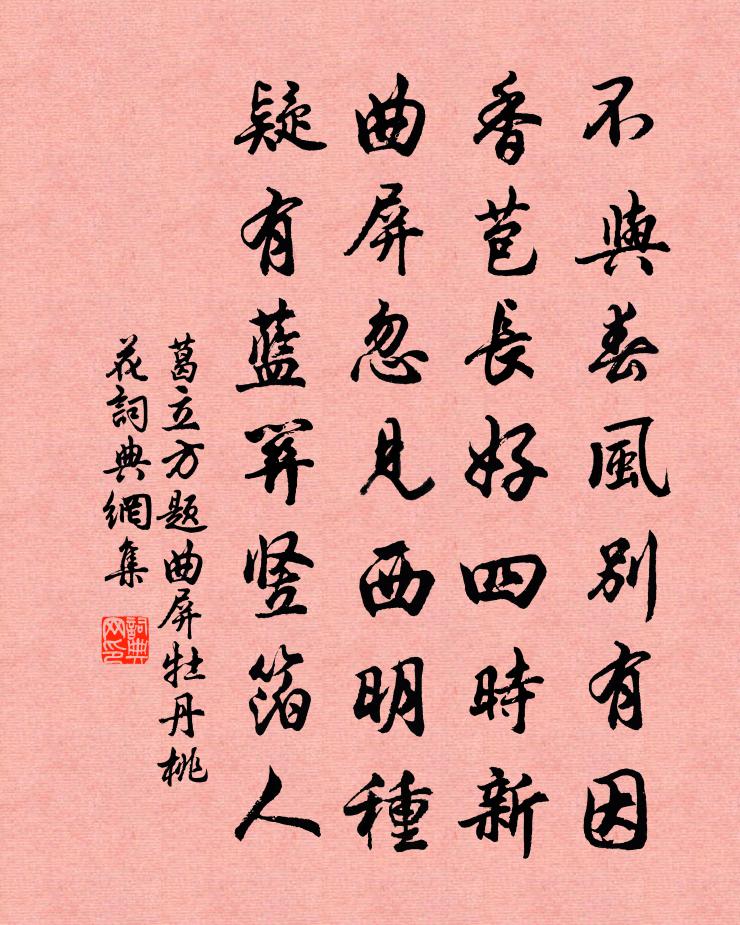 不與春風別有因
香苞長好四時新
曲屏忽見西明種
疑有藍笄豎箔人
葛立方題曲屏牡丹桃
花詞典網集
詞典
网印